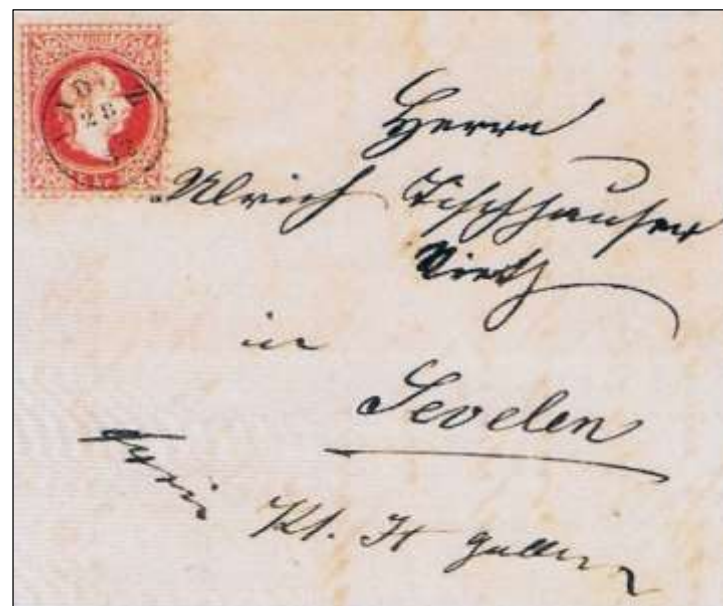 28
Herrn
Ulrich Tischhauser
Wirth
in
Sevelen
Kt. St gallen